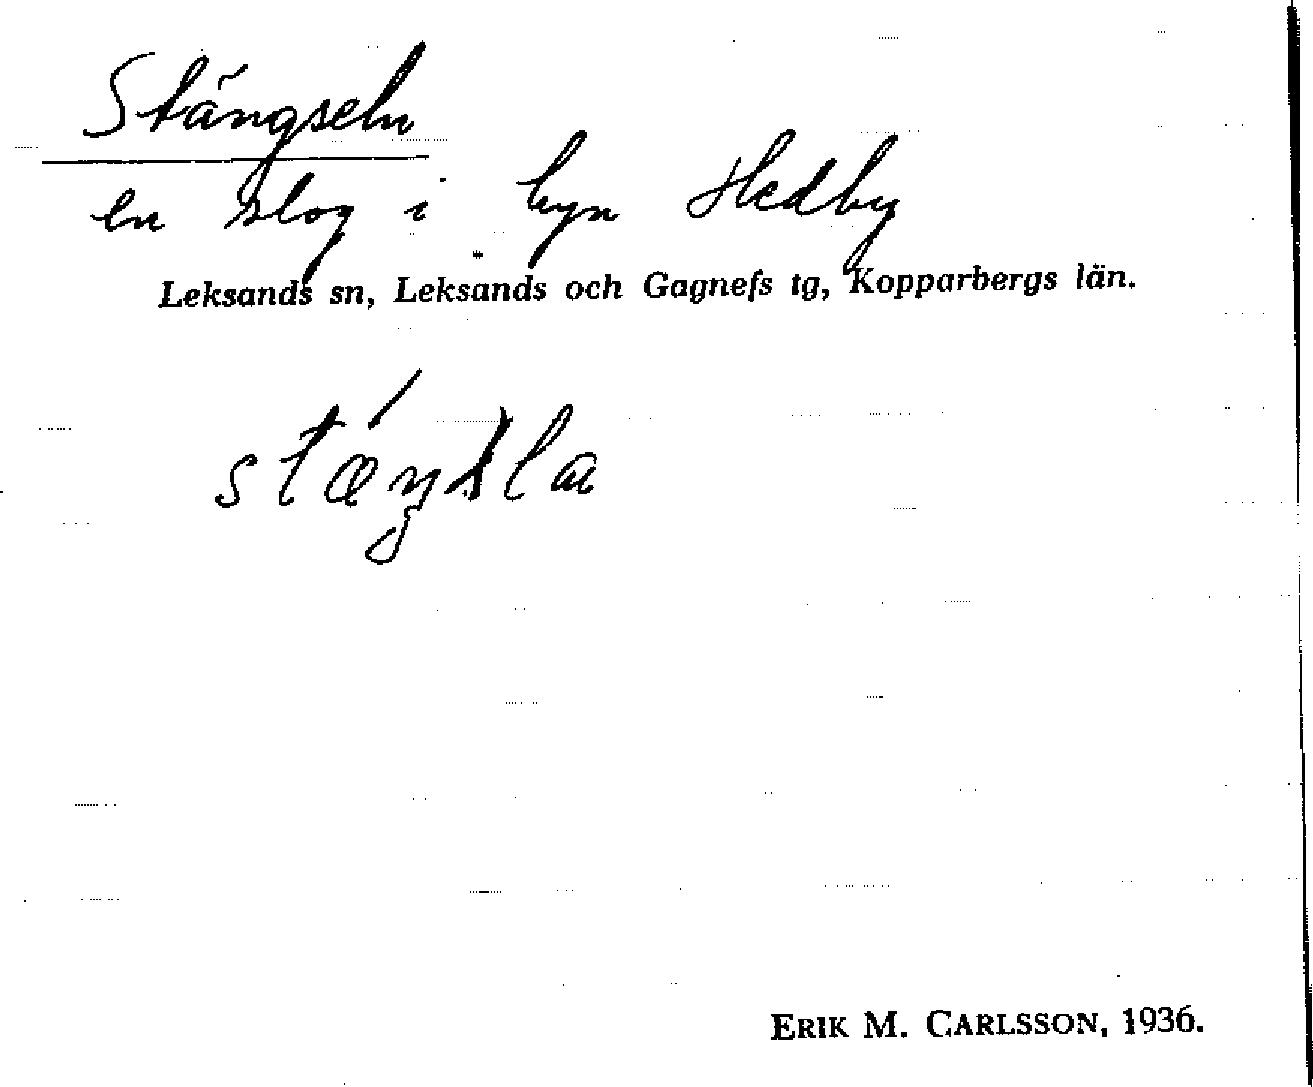 Stängseln
en slog i byn Hedby
Leksands sn, Leksands och Gagnefs tg, Kopparbergs län.
ERIK M. CARLSSON, 1936.